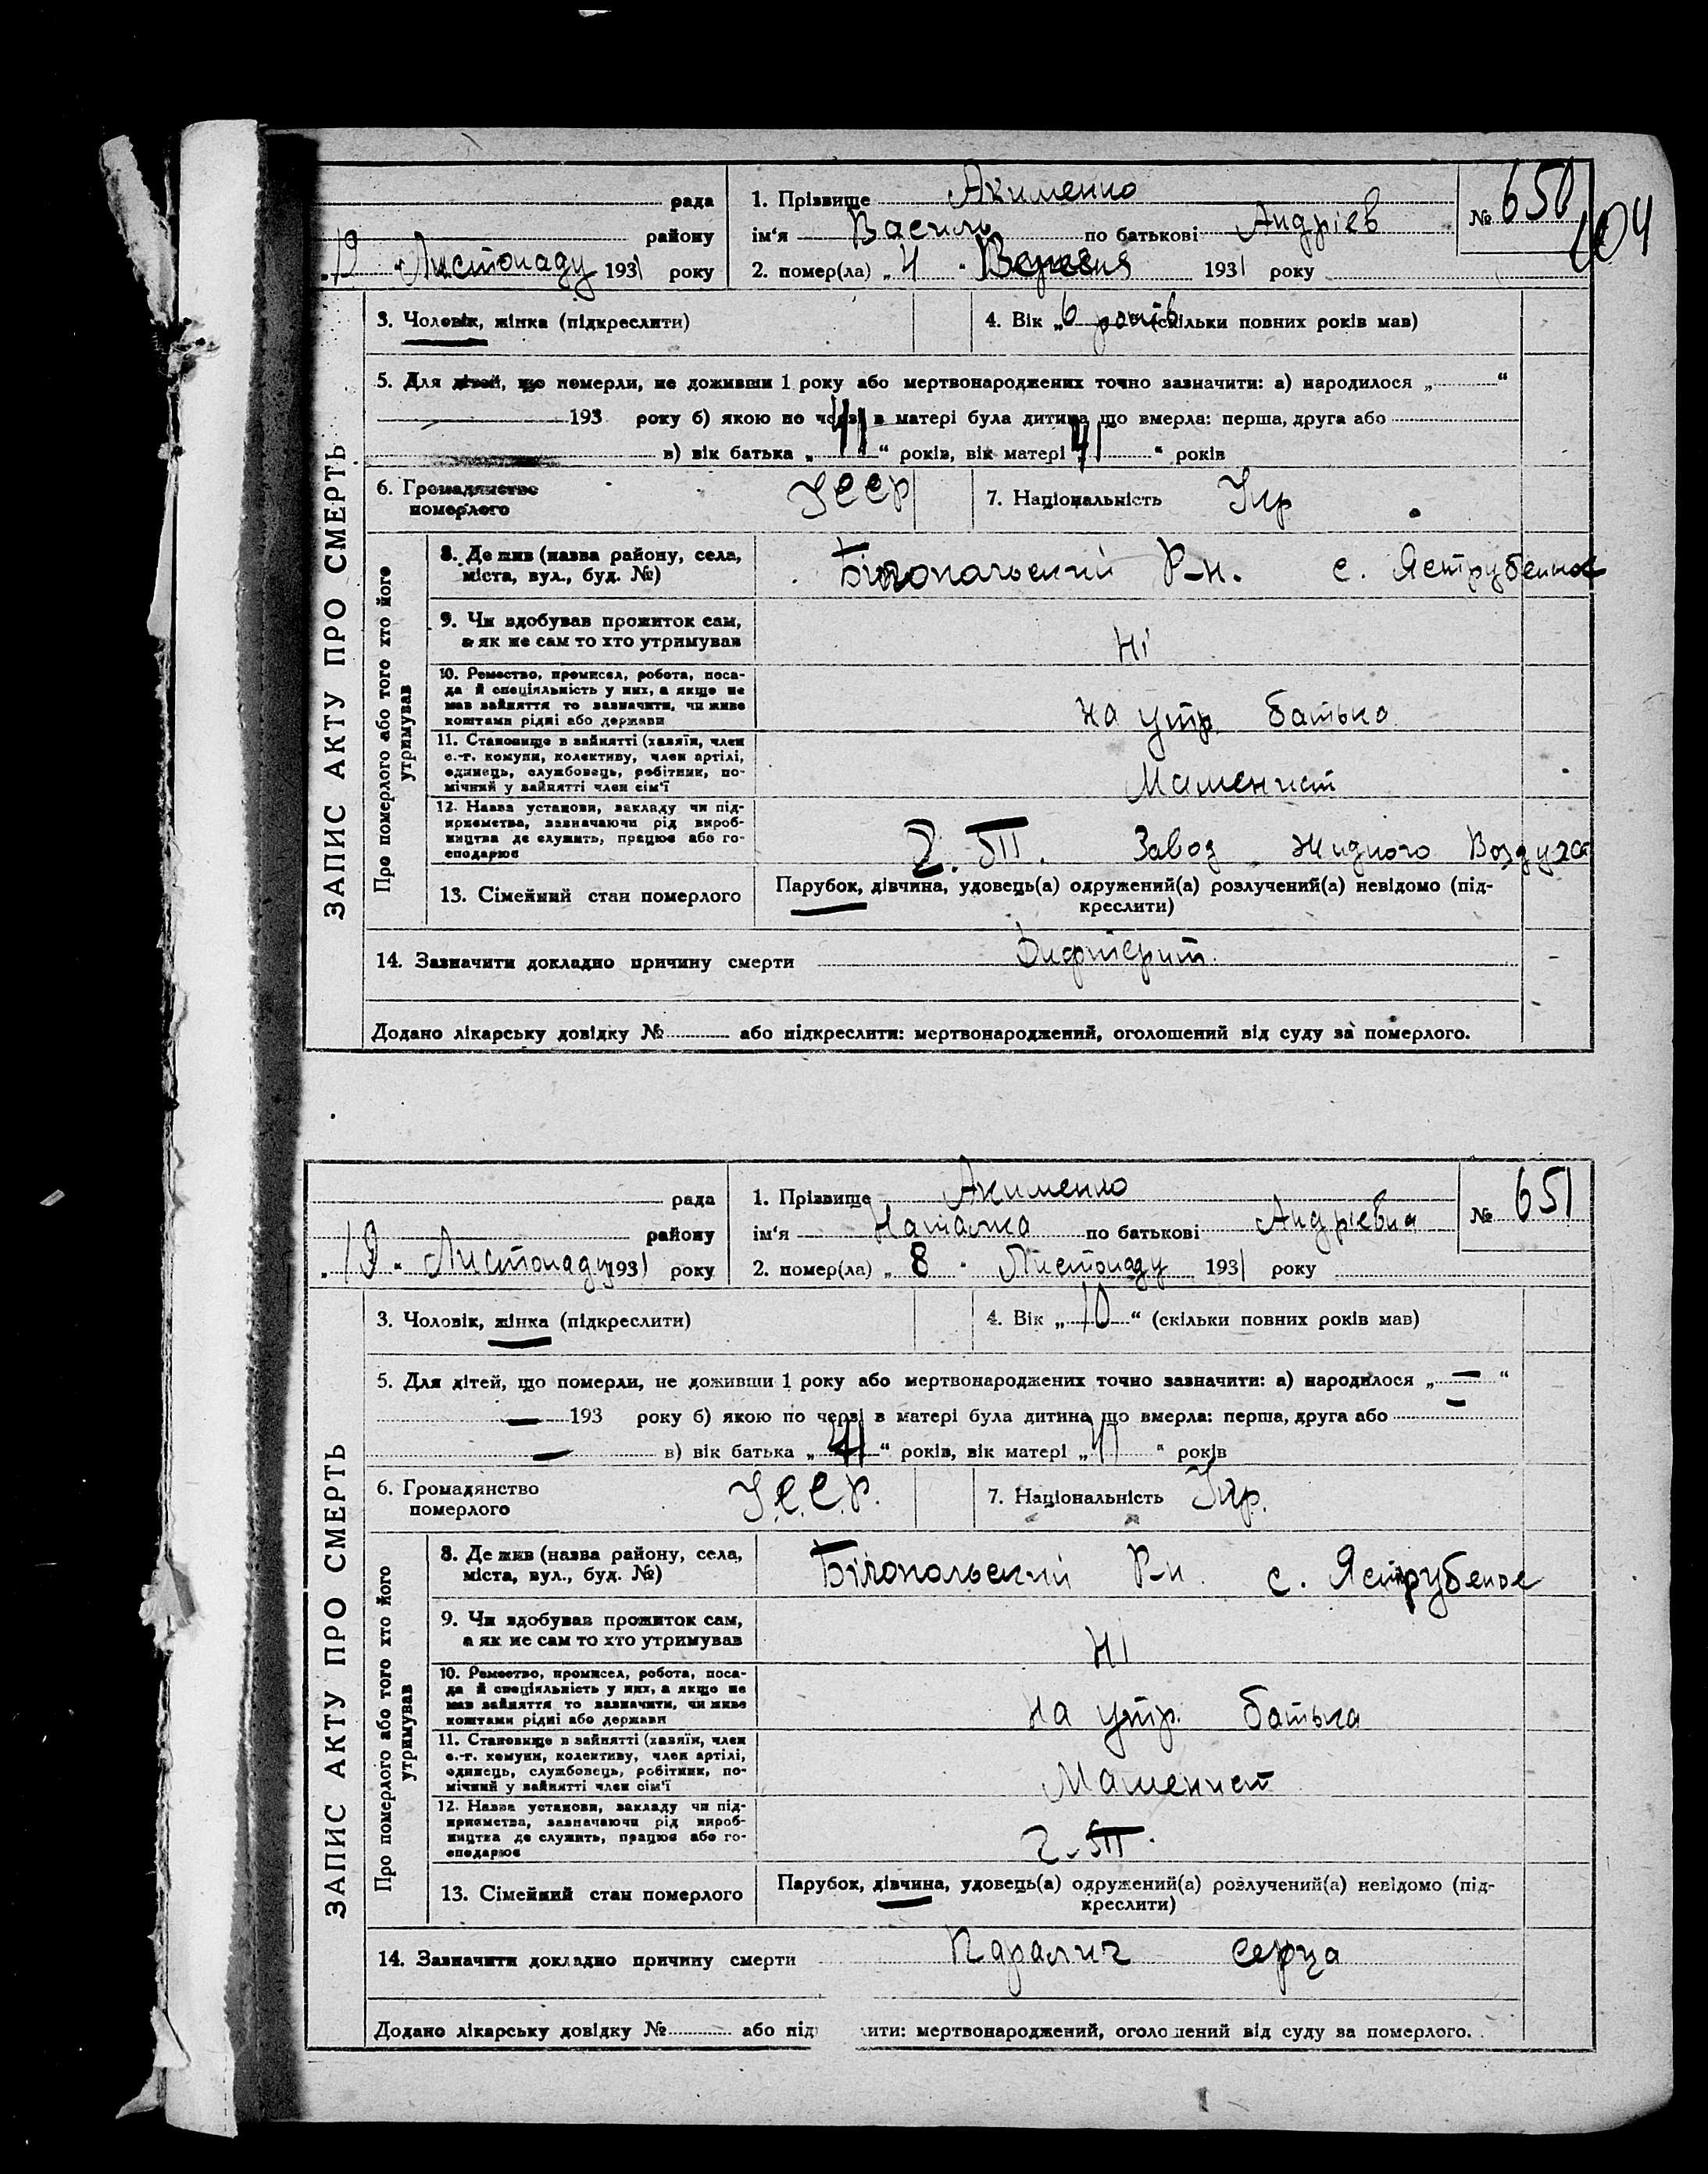 рада
1. Прізвище Акименко
№ 650
104
району
ім‘я Василь по батькові Андріев
„19“ Листопаду 1931 року
2. помер(ла) „4“ Вересня 1931 року
ЗАПИС АКТУ ПРО СМЕРТЬ
3. Чоловік, жінка (підкреслити)
4. Вік „6 років (скільки повних років мав)
5. Для дітей, що померли, не доживши 1 року або мертвонароджених точно зазначити: а) народилося „ “
193 року б) якою по черзі в матері була дитина що вмерла: перша, друга або
в) вік батька „41“ років, вік матері „41“ років
6. Громадянство померлого УССР
7. Національність Укр
Про померлого або того хто його утримував
8. Де жив (назва району, села,
міста, вул., буд. №)
Білопольский Р-н. с. Яструбенное
9. Чи здобував прожиток сам,
а як не сам то хто утримував
Ні
10. Ремество, промисел, робота, поса-
да й спеціяльність у них, а якщо не
мав зайняття то зазначити, чи живе
коштами рідні або держави
на утр. батька
11. Становище в зайнятті (хазяїн, член
с.-г. комуни, колективу, член артілі,
одинець, службовець, робітник, по-
мічний у зайнятті член сім‘ї
Машенист
12. Назва установи, закладу чи під-
приємства, зазначаючи рід вироб-
ництва де служить, працює або го-
сподарює
Завод Жидкого Воздуха
13. Сімейний стан померлого
Парубок, дівчина, удовець(а) одружений(а) розлучений(а) невідомо (під-
креслити)
14. Зазначити докладно причину смерти Дифтерит.
Додано лікарську довідку № або підкреслити: мертвонароджений, оголошений від суду за померлого.
рада
1. Прізвище Акименко
№ 651
району
ім‘я Наталка по батькові Андріевна
„19“ Листопаду 1931 року
2. помер(ла) „8“ Листопаду 1931 року
ЗАПИС АКТУ ПРО СМЕРТЬ
3. Чоловік, жінка (підкреслити)
4. Вік „10“ (скільки повних років мав)
5. Для дітей, що померли, не доживши 1 року або мертвонароджених точно зазначити: а) народилося „ — “
— 193 року б) якою по черзі в матері була дитина що вмерла: перша, друга або
— в) вік батька „41“ років, вік матері „41“ років
6. Громадянство померлого У.С.С.Р.
7. Національність Укр.
Про померлого або того хто його утримував
8. Де жив (назва району, села,
міста, вул., буд. №)
Білопольский Р-н. с. Яструбеное
9. Чи здобував прожиток сам,
а як не сам то хто утримував
Ні
10. Ремество, промисел, робота, поса-
да й спеціяльність у них, а якщо не
мав зайняття то зазначити, чи живе
коштами рідні або держави
на утр. батька
11. Становище в зайнятті (хазяїн, член
с.-г. комуни, колективу, член артілі,
одинець, службовець, робітник, по-
мічний у зайнятті член сім‘ї
Машенист
12. Назва установи, закладу чи під-
приємства, зазначаючи рід вироб-
ництва де служить, працює або го-
сподарює
13. Сімейний стан померлого
Парубок, дівчина, удовець(а) одружений(а) розлучений(а) невідомо (під-
креслити)
14. Зазначити докладно причину смерти Паралич серца
Додано лікарську довідку № або під ити: мертвонароджений, оголо ений від суду за померлого.